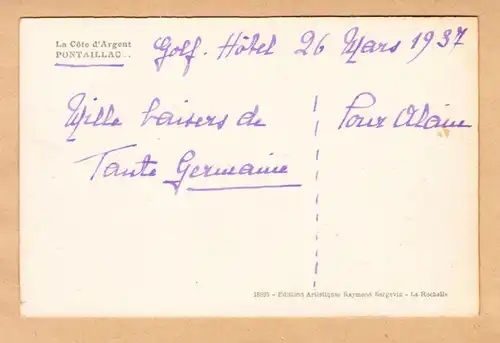 La Côte d'Argent
PONTAILLAC..
Golf. Hôtel 26 Mars 1937
Mille baisers de
Tante Germaine
Pour Alain
Editions Artistiques Raymond Bergevin - La Rochelle